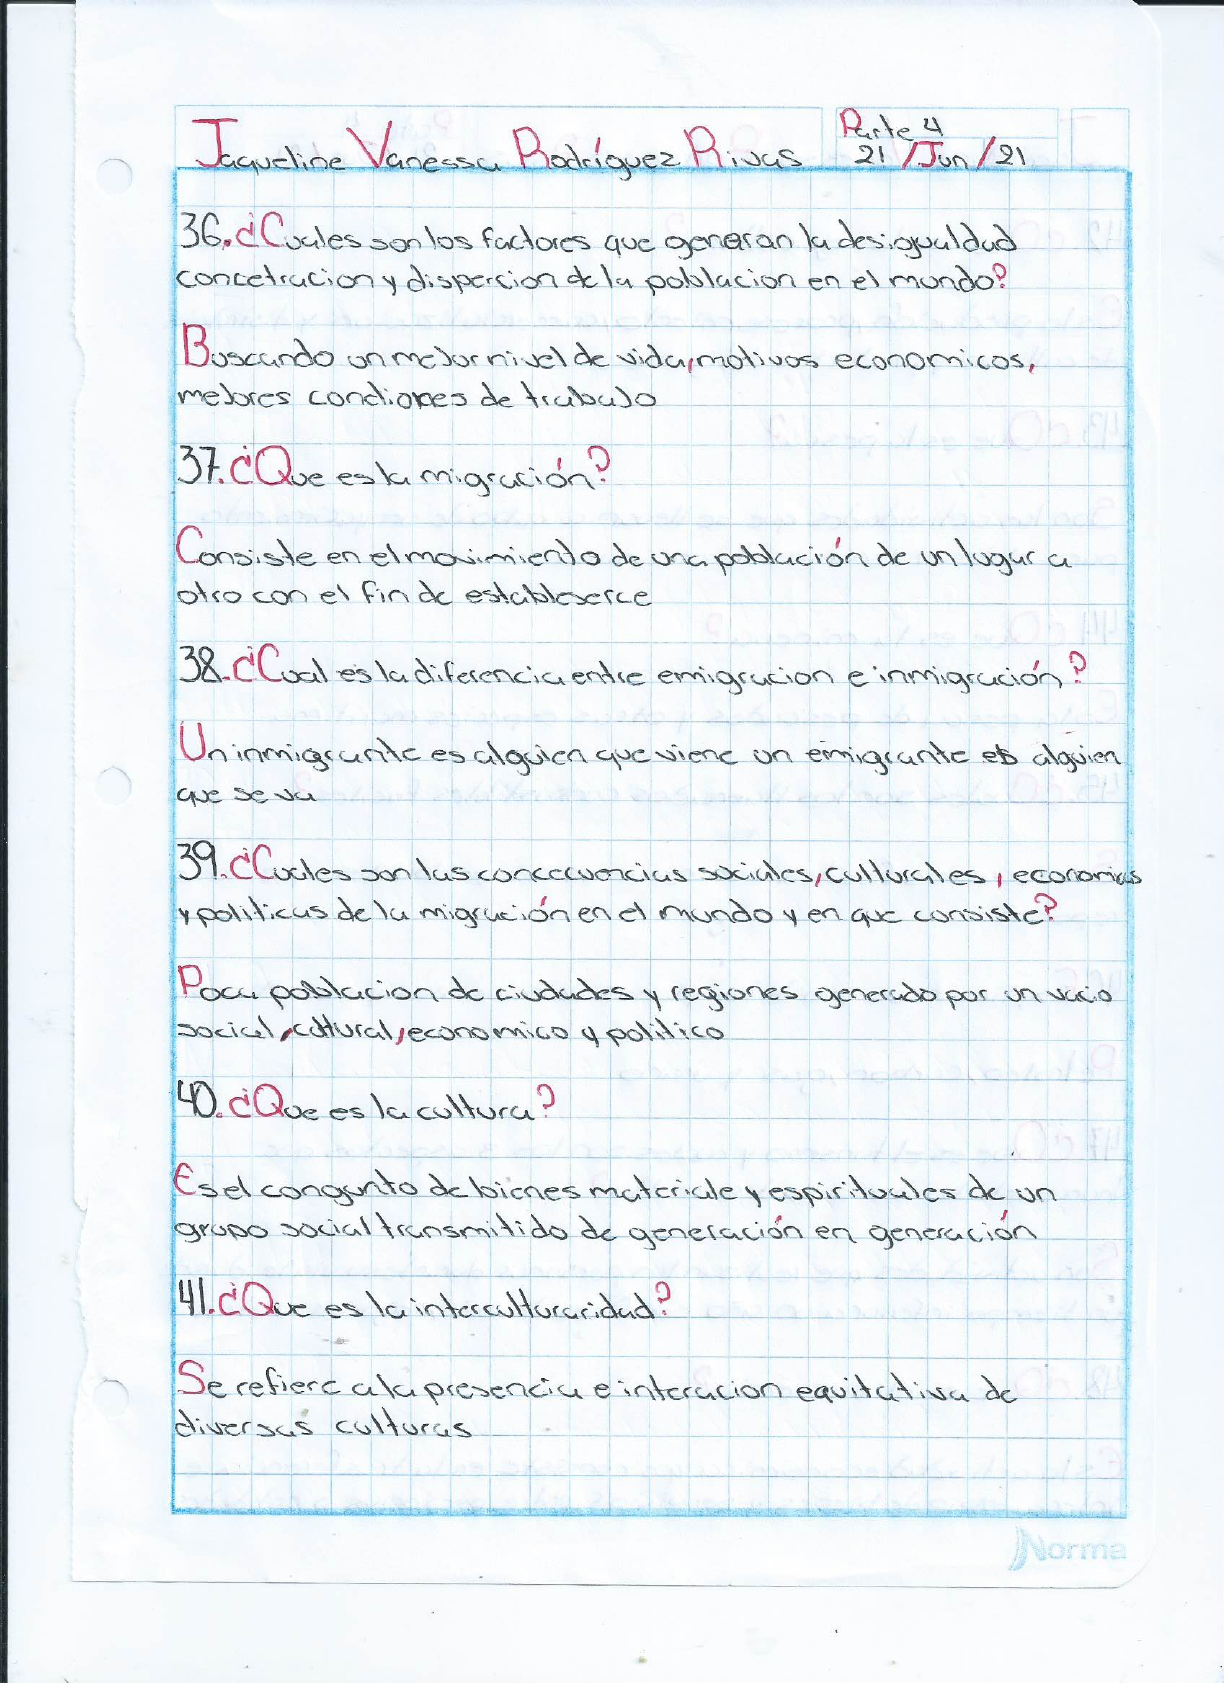 Jaqueline Vanessa Rodríguez Rivas
Parte 4
21/Jun/21
36. ¿Cuales son los factores que generan la desigualdad
concetracion y dispercion de la poblacion en el mundo?
Buscando un mejor nivel de vida, motivos economicos,
mejores condiones de trabajo
37. ¿Que es la migración?
Consiste en el movimiento de una población de un lugar a
otro con el fin de estableserce
38. ¿Cual es la diferencia entre emigracion e inmigración?
Un inmigrante es alguien que viene un emigrante es alguien
que se va
39. ¿Cuales son las concecuencias sociales, culturales, economicas
y politicas de la migración en el mundo y en que consiste?
Poca poblacion de ciudades y regiones generado por un vacio
social, cultural, economico y politico
40. ¿Que es la cultura?
Es el congunto de bienes materiale y espirituales de un
grupo social transmitido de generación en generación
41. ¿Que es la interculturaridad?
Se refiere a la presencia e interacion equitativa de
diversas culturas
Norma